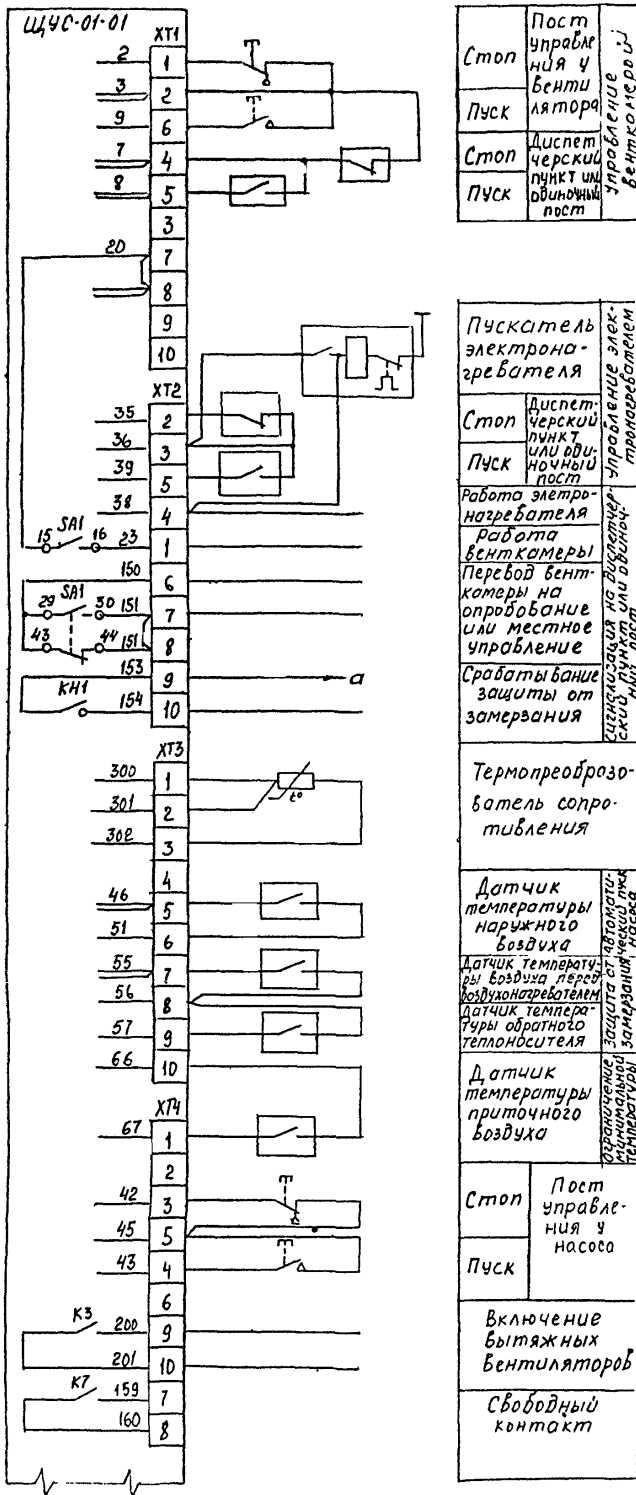 ЩУС-01-01
XT1
2 1
3 2
9 6
7 4
8 5
3
20 7
8
9
10
XT2
35 2
36 3
39 5
38 4
15 SA1 16 23 1
150 6
29 SA1 30 151 7
43 44 151 8
153 9 а
КН1 154 10
XT3
300 1
301 2
t°
302 3
4
46 5
51 6
55 7
56 8
57 9
66 10
XT4
67 1
2
42 3
45 5
43 4
6
К3 200 9
201 10
К7 159 7
160 8
Стоп
Пуск
Пост
управле
ния у
венти
лятора
Стоп
Пуск
Диспет
черский
пункт или
одиночный
пост
Управление
венткамерой
Пускатель
электрона-
гревателя
Стоп
Пуск
Диспет-
черский
пункт
или оди-
ночный
пост
Управление элек-
тронагревателем
Работа элетро-
нагревателя
Работа
венткамеры
Перевод вент-
камеры на
опробование
или местное
управление
Срабатывание
защиты от
замерзания
Сигнализация на диспетчер-
ский пункт или одиноч-
ный пост
Термопреобразо-
ватель сопро-
тивления
Датчик
температуры
наружного
воздуха
Автомати-
ческий пуск
насоса
Датчик температу-
ры воздуха перед
воздухонагревателем
Датчик темпера-
туры обратного
теплоносителя
Защита от
замерзания
Датчик
температуры
приточного
воздуха
Ограничение
минимальной
температуры
Стоп
Пуск
Пост
управле-
ния у
насоса
Включение
вытяжных
вентиляторов
Свободный
контакт